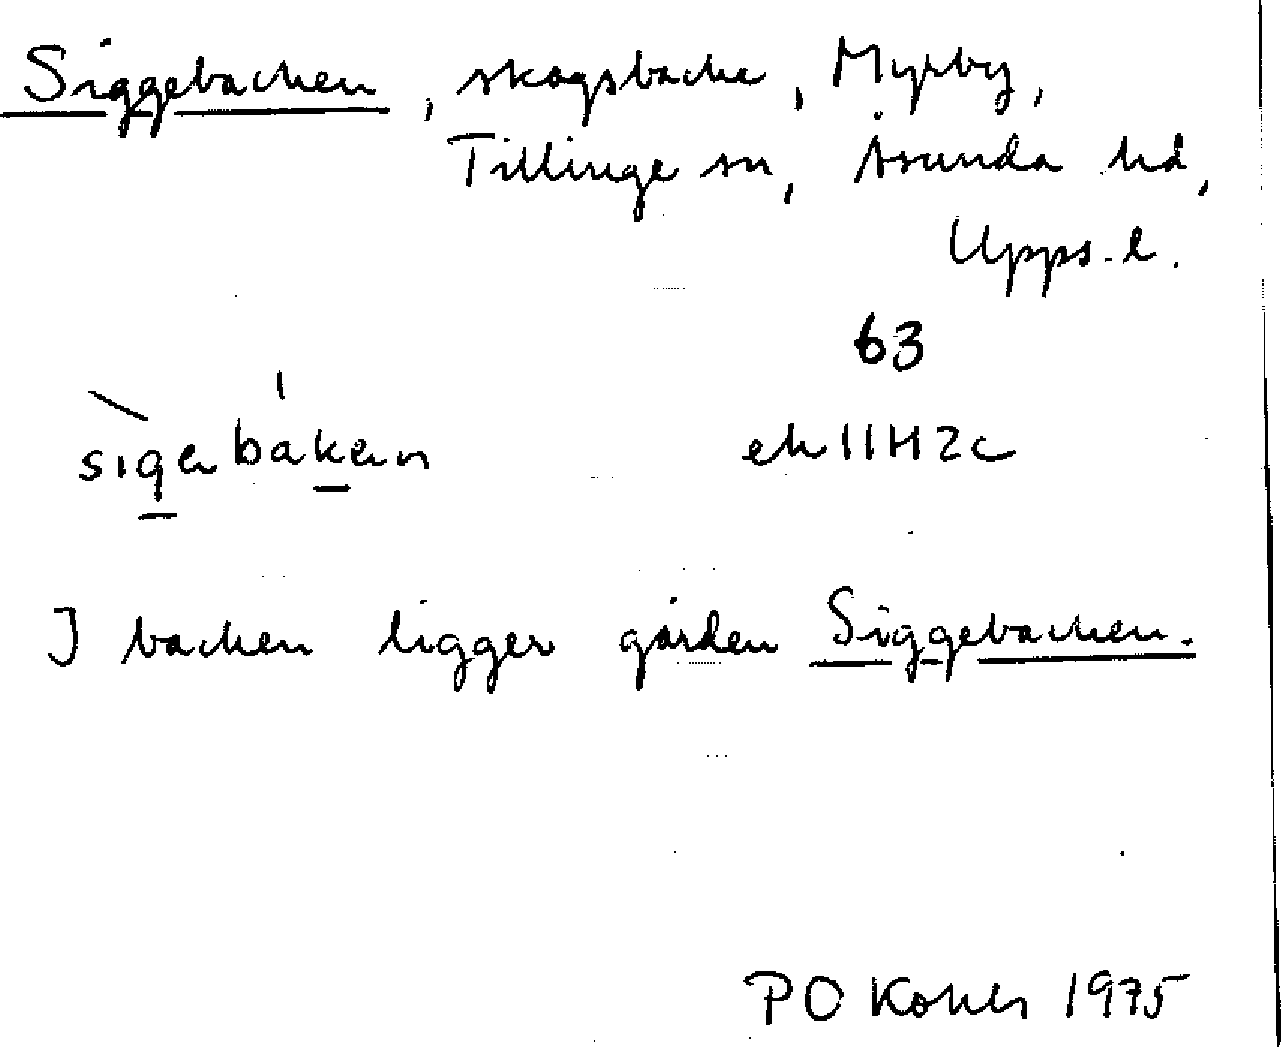 Siggebacken, skogsbacke, Myrby,
Tillinge sn, Åsunda hd,
Upps. l.
63
sigebaken ek 11H2c
I backen ligger gården Siggebacken.
PO 1975